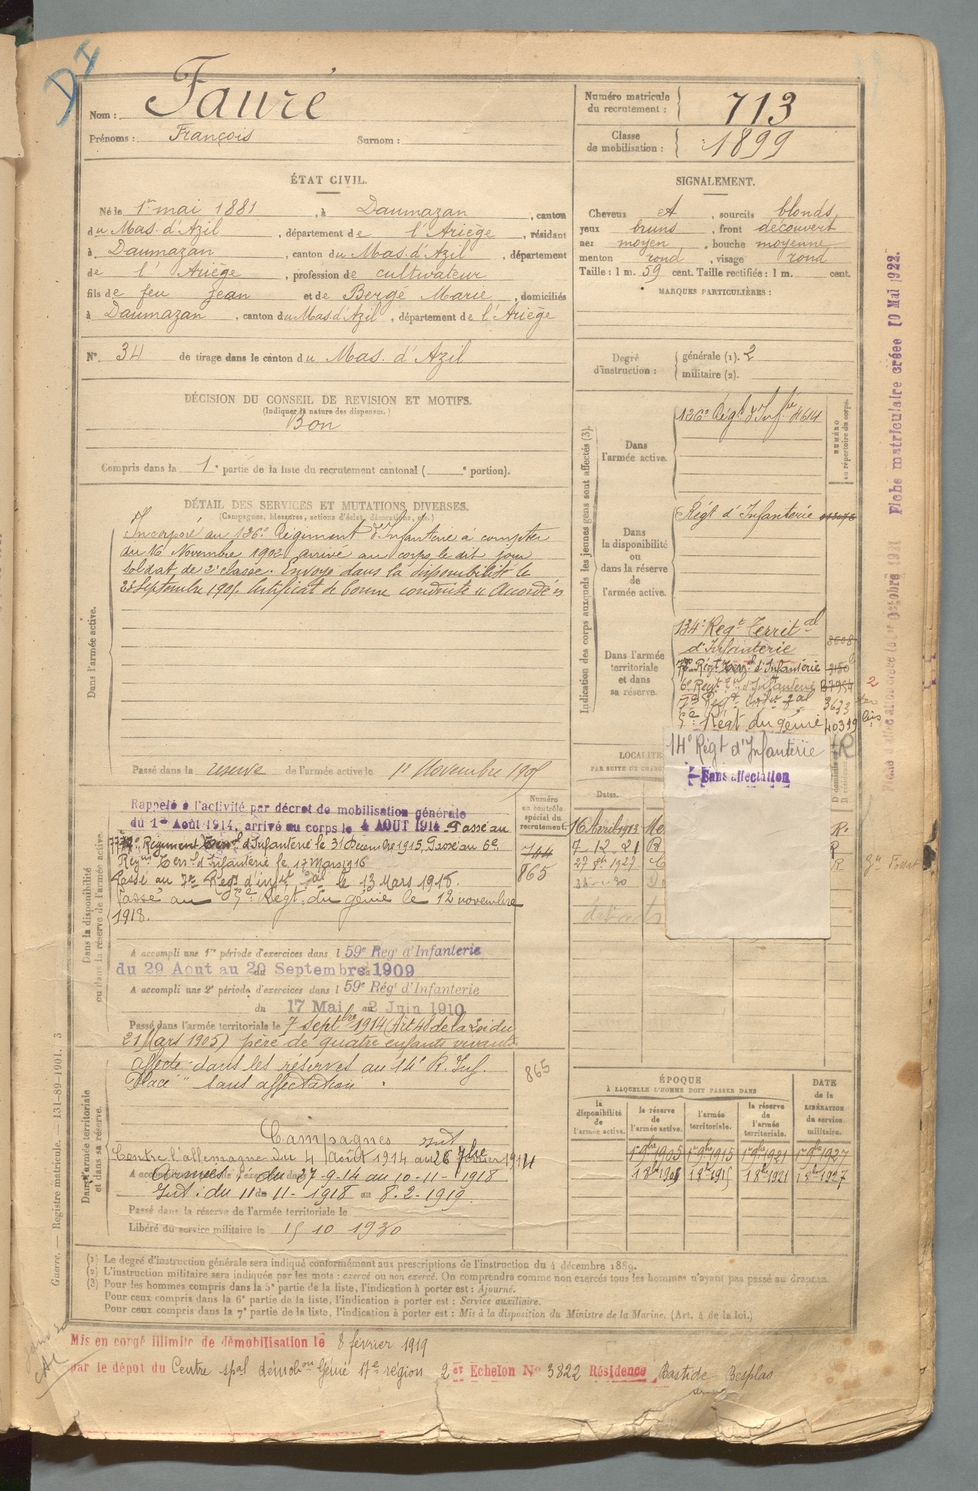 DI
Nom : Faure
Prénoms : François Surnom :
Numéro matricule du recrutement : 713
Classe de mobilisation : 1899
ÉTAT CIVIL.
Né le 1er mai 1881, à Daumazan, canton
du Mas d'Azil, département de l'Ariège, résidant
à Daumazan, canton du Mas d'Azil, département
de l'Ariège, profession de cultivateur
fils de feu Jean et de Bergé Marie, domiciliés
à Daumazan, canton du Mas d'Azil, département de l'Ariège
N° 34 de tirage dans le canton du Mas d'Azil
SIGNALEMENT.
Cheveux et, sourcils blonds
yeux bruns, front découvert
nez moyen, bouche moyenne
menton rond, visage rond
Taille : 1 m. 59 cent. Taille rectifiée : 1 m. cent.
MARQUES PARTICULIÈRES :
Degré d'instruction : générale (1). 2
militaire (2).
DÉCISION DU CONSEIL DE REVISION ET MOTIFS.
(Indiquer la nature des dispenses.)
Bon
Compris dans la 1e partie de la liste du recrutement cantonal ( e portion).
DÉTAIL DES SERVICES ET MUTATIONS DIVERSES.
(Campagnes, blessures, actions d'éclat, décorations, etc.)
Dans l'armée active.
Incorporé au 126e Régiment d'Infanterie à compter
du 16 Novembre 1902 arrivé au corps le dit jour
soldat de 2e classe. Envoyé dans la disponibilité le
Septembre 190 Certificat de bonne conduite "Accordé"
Passé dans la réserve de l'armée active le 1er Novembre 190
Indication des corps auxquels les jeunes gens sont affectés (3).
NUMÉRO au répertoire du corps.
Dans l'armée active.
126e Régt d'Infie
Dans la disponibilité ou dans la réserve de l'armée active.
Régt d'Infanterie
Dans l'armée territoriale et dans sa réserve.
134e Régt Territal
d'Infanterie
Régt Terral d'Infanterie
6e Régt d'Infanterie 37954
3673
Régt du génie 40319
14e Régt d'Infanterie
Sans affectation
LOCALITÉ
Dates.
16 Avril 1913
7-12-21
27 1927
Dans la disponibilité ou dans la réserve de l'armée active.
Rappelé à l'activité par décret de mobilisation générale
du 1er Août 1914, arrivé au corps le 4 AOUT 1914 Passé au
Régiment Terral d'Infanterie le 31 Décembre 1915, Passé au 6e
Régnt Terral d'Infanterie le 17 Mars 1916
Passé au 7e Régt d'inft le 13 Mars 1918.
Passé au Régt du génie le 12 novembre
1918.
Numéro au contrôle spécial du recrutement.
744
865
A accompli une 1re période d'exercices dans l 59e Régt d'Infanterie
du 29 Aout au 20 Septembre 1909
A accompli une 2e période d'exercices dans l 59e Régt d'Infanterie
du 17 Mai au 2 Juin 1910
Passé dans l'armée territoriale le 7 septbre 1914 (Art 48 de la Loi du
21 Mars 1905) père de quatre enfants vivants
Dans l'armée territoriale et dans sa réserve.
Affecté dans les réserves au 14e R. Inf.
Placé "sans affectation".
865
Campagnes
Contre l'allemagne du 4 Août 1914 au 26 1914
Armées : du 27-9-14 au 10-11-1918
Int : du 11-11-1918 au 8-2-1919
Passé dans la réserve de l'armée territoriale le
Libéré du service militaire le 15 10 1930
ÉPOQUE
À LAQUELLE L'HOMME DOIT PASSER DANS
la disponibilité de l'armée active.
la réserve de l'armée active.
l'armée territoriale.
la réserve de l'armée territoriale.
DATE de la LIBÉRATION du service militaire.
1er 9bre 1905 1er 9bre 1915 1er 9bre 1921 1er 9bre 1927
(1) Le degré d'instruction générale sera indiqué conformément aux prescriptions de l'instruction du 4 décembre 1889.
(2) L'instruction militaire sera indiquée par les mots : exercé ou non exercé. On comprendra comme non exercés tous les hommes n'ayant pas passé au drapeau.
(3) Pour les hommes compris dans la 5e partie de la liste, l'indication à porter est : Ajourné.
Pour ceux compris dans la 6e partie de la liste, l'indication à porter est : Service auxiliaire.
Pour ceux compris dans la 7e partie de la liste, l'indication à porter est : Mis à la disposition du Ministre de la Marine. (Art. 4 de la loi.)
Mis en congé illimité de démobilisation le 8 février 1919
par le dépôt du Centre spal démobon Génie 17e région 2e Echelon No 3822 Résidence Bastide Besplas
Guerre. — Registre matricule. 131-89-1901. 3
Fiche matriculaire créée 10 Mai 1922.